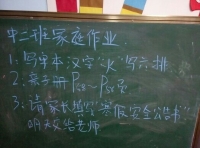 中二班家庭作业
1. 写字本汉字“火”写六排
2. 亲子册 P50~P5
3. 请家长填“寒假安全公告书”
明天交给老师